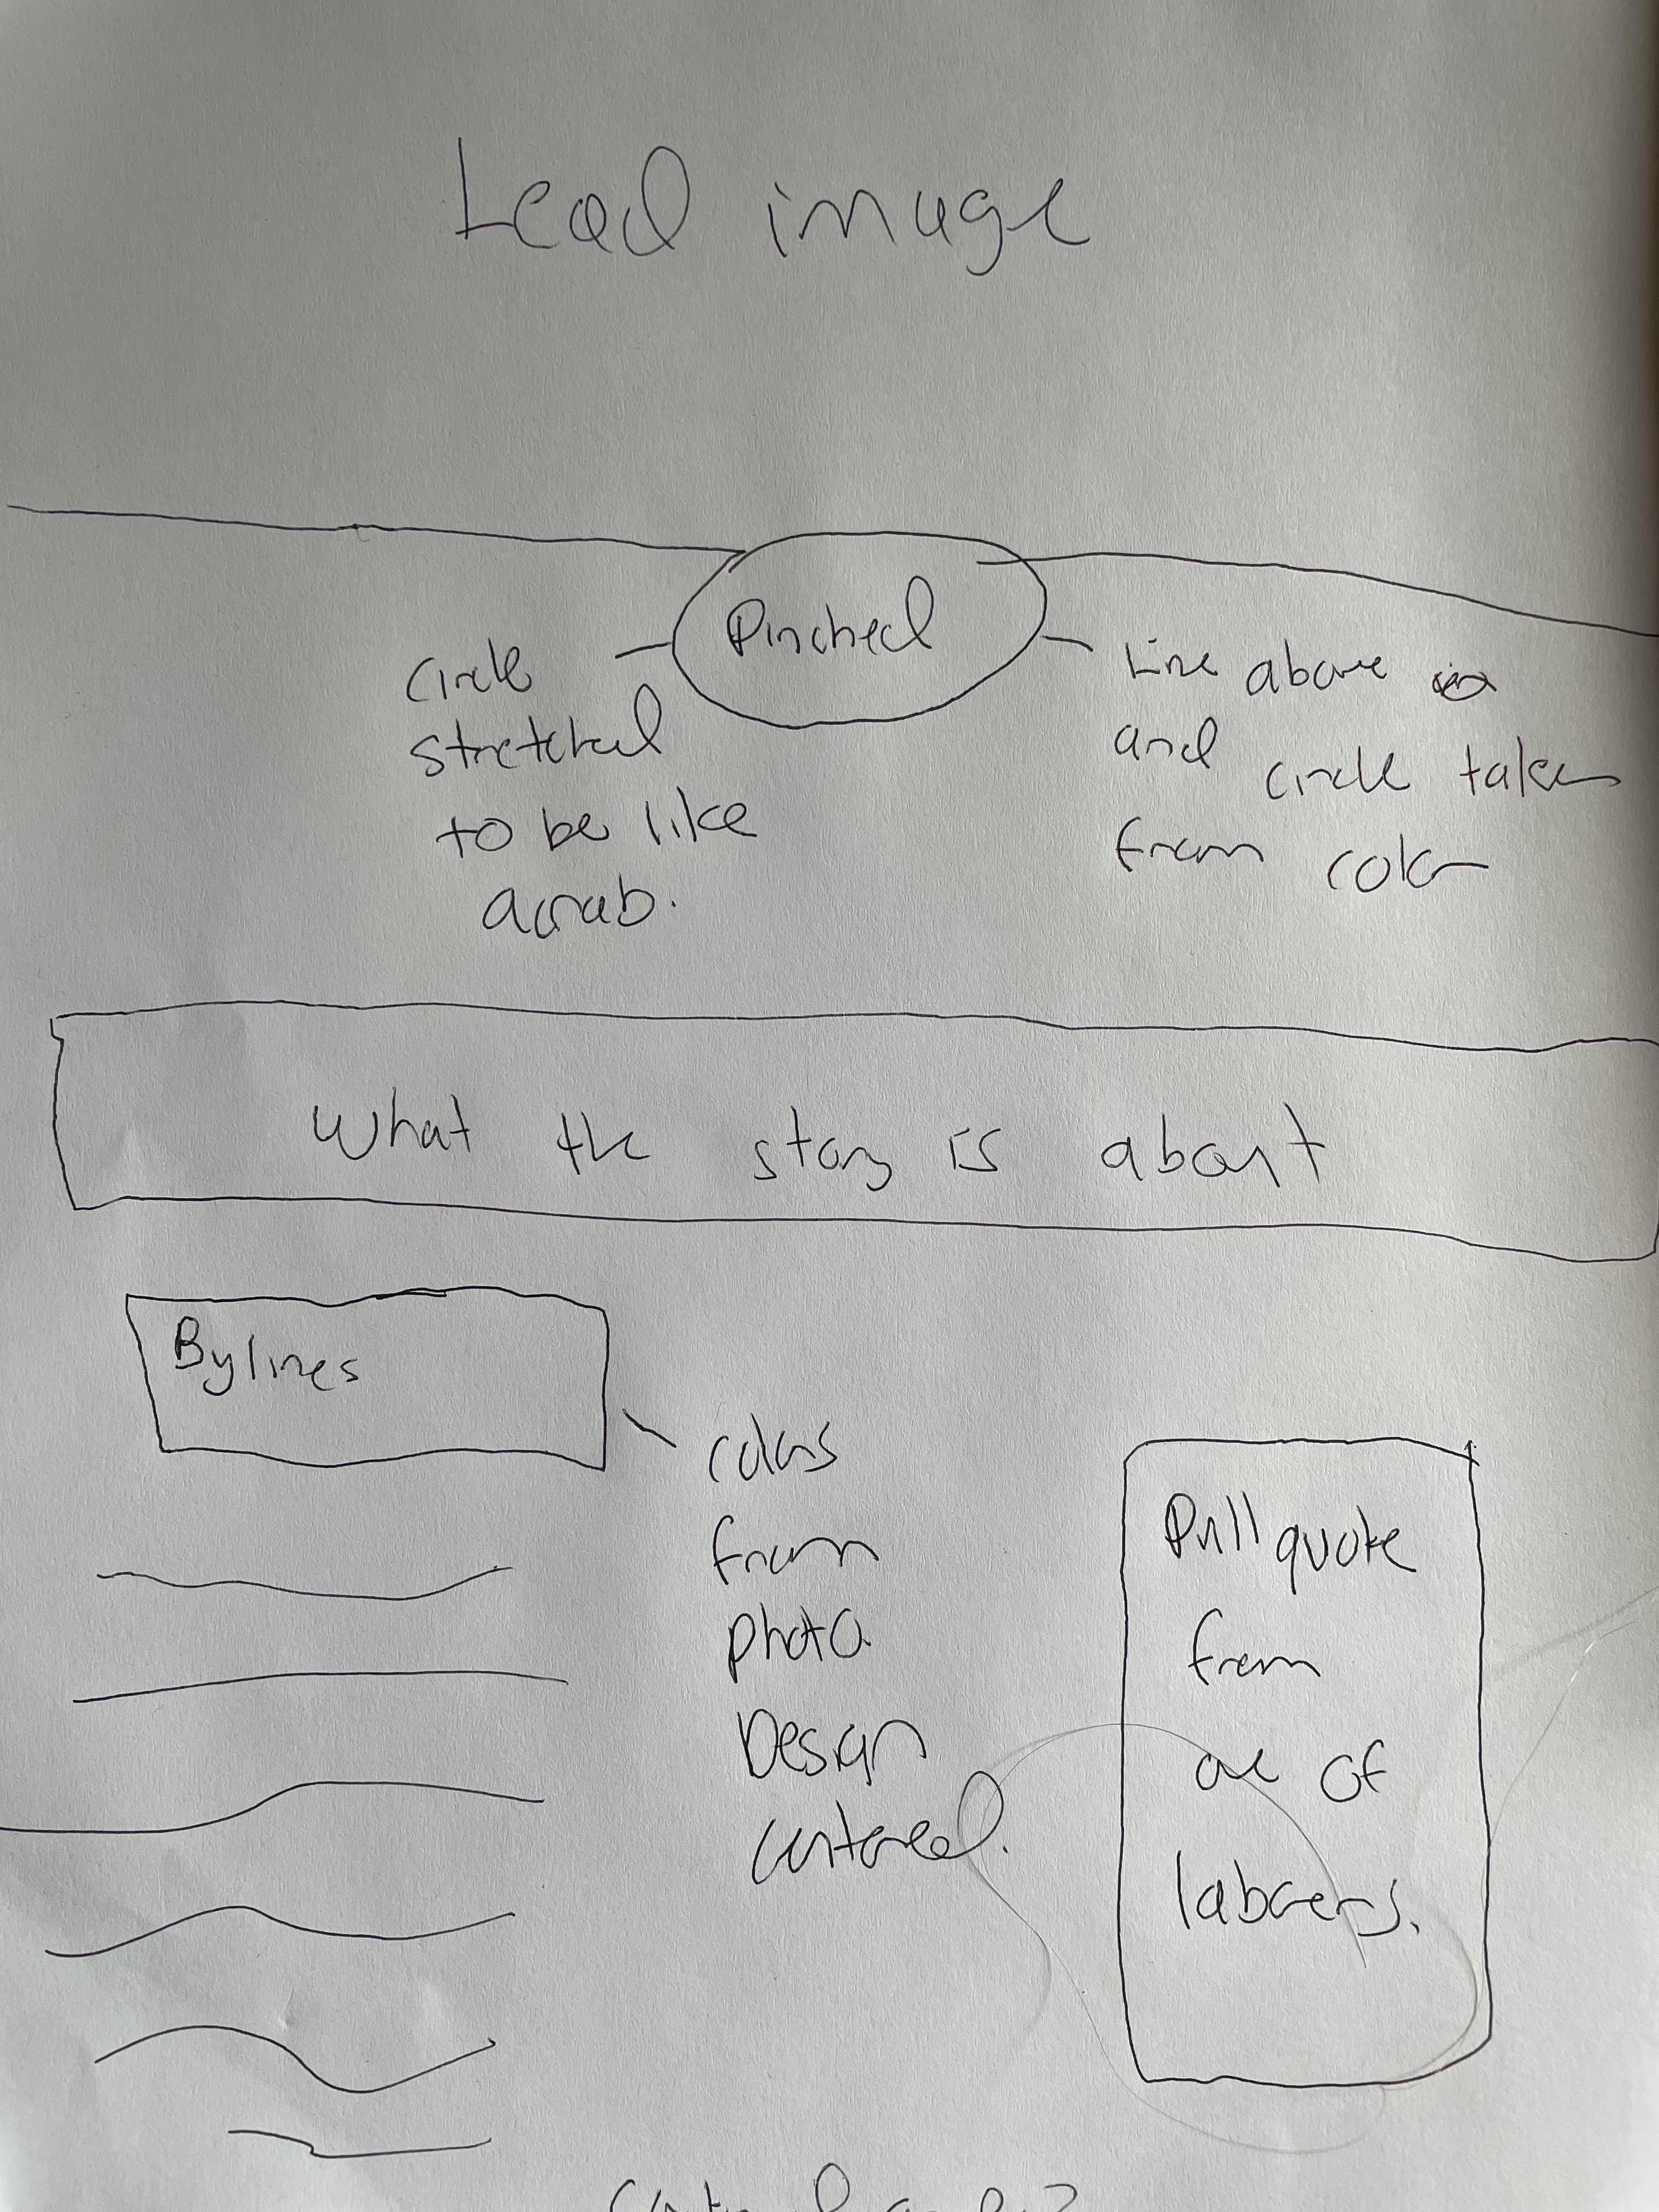 Lead image
Pinched
Circle
stretched
to be like
a crab.
Line above
and circle taken
from color
What the story is about
Bylines
colors
from
photo
Design
centered.
Pull quote
from
one of
laborers.